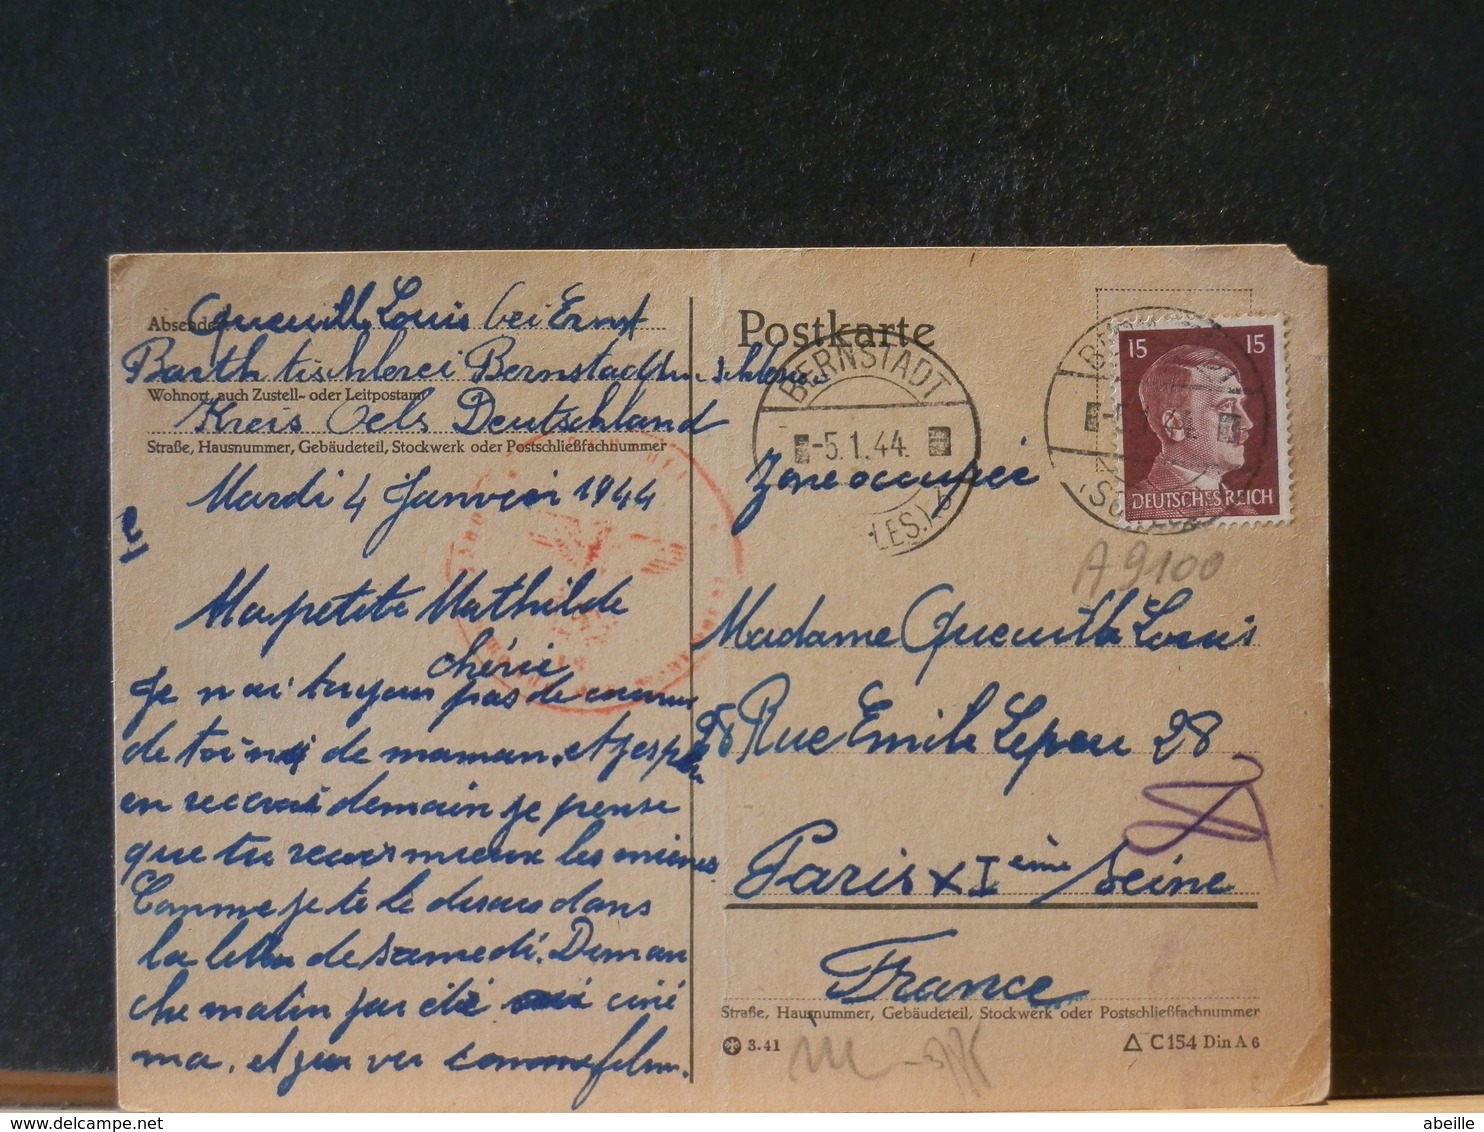 Absender: Queuille Louis bei Ernst
Barth tischlerei Bernstadt in Schlesien
Wohnort, auch Zustell- oder Leitpostamt
Kreis Oels Deutschland
Straße, Hausnummer, Gebäudeteil, Stockwerk oder Postschließfachnummer
Mardi 4 Janvier 1944
Ma petite Mathilde
chérie
Je n'ai toujours pas de
de toi ni de maman, et j'espère
en recevoir demain je pense
que tu recois mieux les miennes
Comme je te le disais dans
la lettre de samedi. Diman
che matin j'ai été ciné
ma, et j'ai vu comme film.
Postkarte
BERNSTADT
-5.1.44.
(SCHLES.)
15 15
DEUTSCHES REICH
Zone occupée
A9100
Madame Queuille Louis
28 Rue Emile Lepeu 28
Paris XIème Seine
France
Straße, Hausnummer, Gebäudeteil, Stockwerk oder Postschließfachnummer
3.41
C 154 Din A 6
abeille